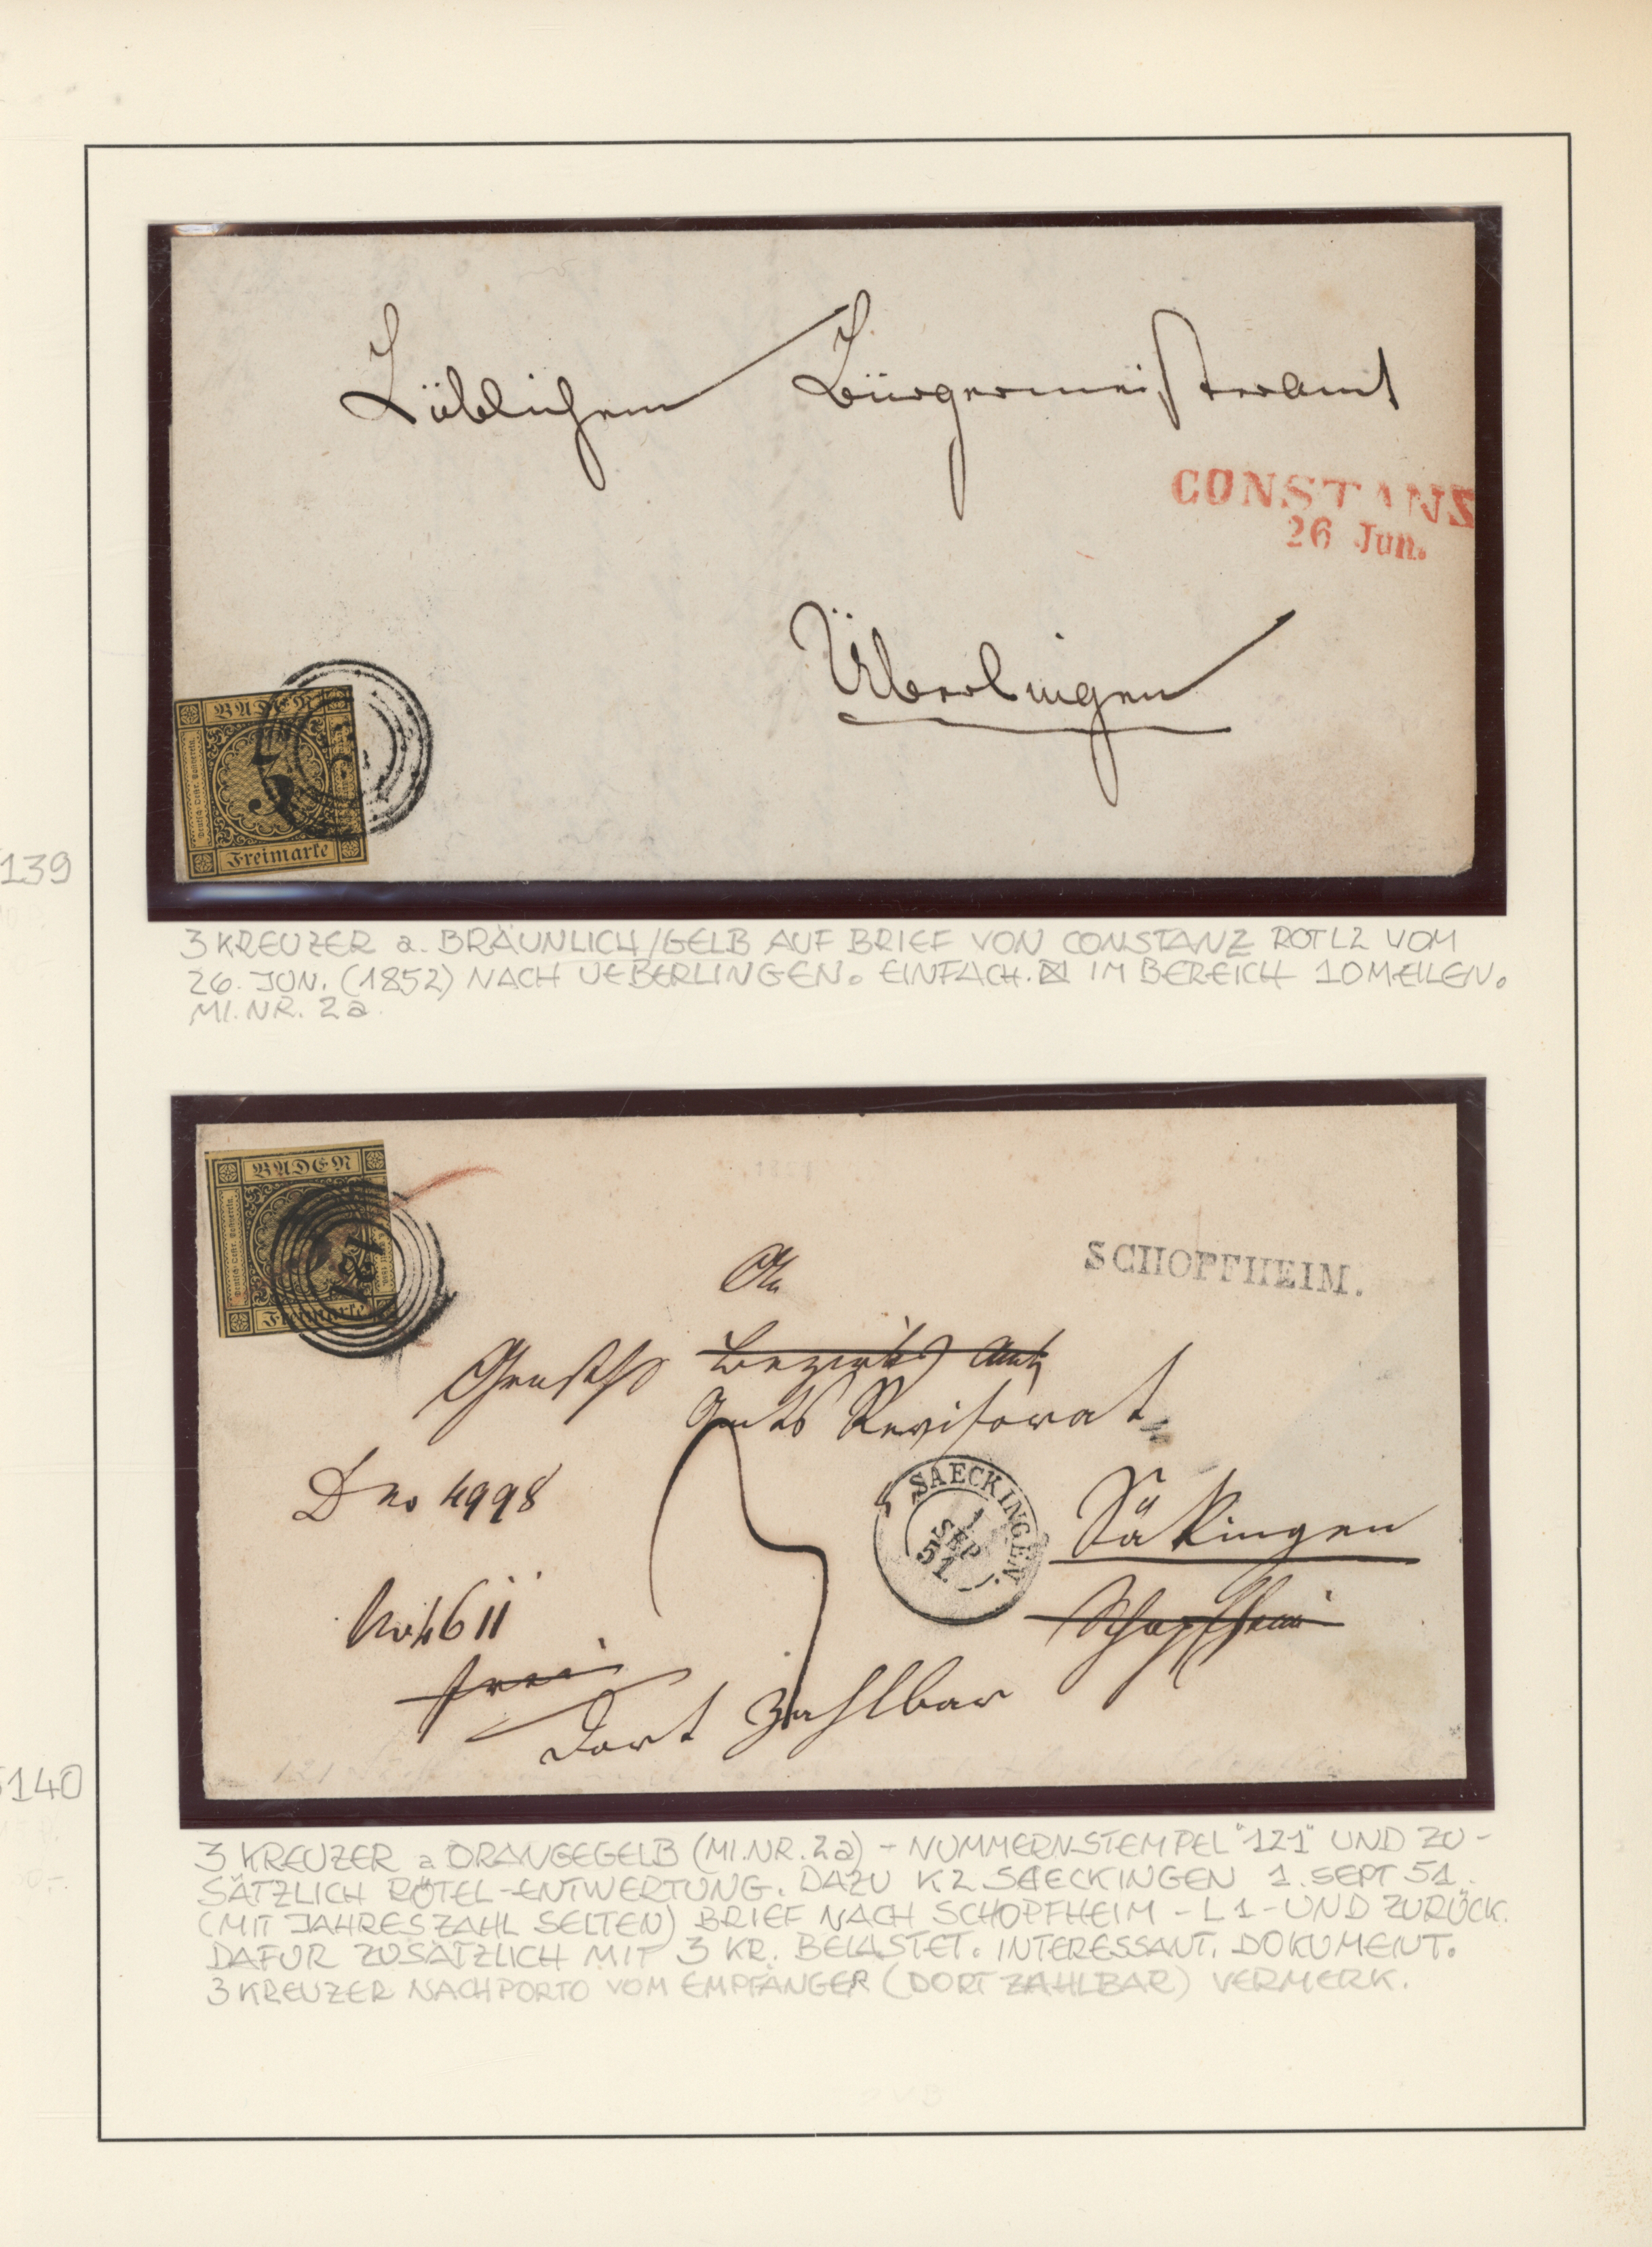 Löblichem Bürgermeisteramt
CONSTANZ
26 Jun.
Überlingen
BADEN
3
Deutsch-Oestr. Postverein.
Freimarke
139
3 KREUZER a. BRÄUNLICH/GELB AUF BRIEF VON CONSTANZ ROT L2 VOM
26. JUN. (1852) NACH UEBERLINGEN. EINFACH. ⊠ IM BEREICH 10 MEILEN.
MI.NR. 2a.
BADEN
Deutsch-Oestr. Postverein.
121
Freimarke
SCHOPFHEIM.
An
Grosh Bezirks Amt
Amts Revisorat
Dno 4998
SAECKINGEN
1
SEP
51
Säkingen
No 4611
Schopfheim
frei
3
Dort zahlbar
140
3 KREUZER a ORANGEGELB (MI.NR. 2a) - NUMMERNSTEMPEL "121" UND ZU-
SÄTZLICH RÖTEL-ENTWERTUNG. DAZU K2 SAECKINGEN 1. SEPT 51.
(MIT JAHRESZAHL SELTEN) BRIEF NACH SCHOPFHEIM - L1 - UND ZURÜCK.
DAFÜR ZUSÄTZLICH MIT 3 KR. BELASTET. INTERESSANT. DOKUMENT.
3 KREUZER NACHPORTO VOM EMPFÄNGER (DORT ZAHLBAR) VERMERK.